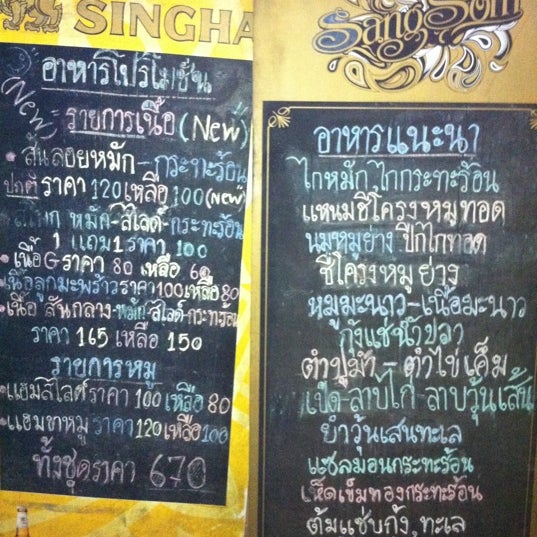 SINGHA
อาหารโปรโมชั่น
(New)
รายการเนื้อ (New)
• สันลอยหมัก-กระทะร้อน
ปกติ ราคา 120 เหลือ 100 (New)
หมัก-สไลด์-กระทะร้อน
1 แถม 1 ราคา 100
• เนื้อGราคา 80 เหลือ 60
เนื้อลูกมะพร้าวราคา 100 เหลือ 80
• เนื้อ สันกลาง-หมัก-สไลด์-กระทะร้อน
ราคา 165 เหลือ 150
รายการหมู
• แฮมสไลด์ราคา 100 เหลือ 80
• แฮมขาหมู ราคา 120 เหลือ 100
ทั้งชุดราคา 670
SangSom
อาหารแนะนำ
ไก่หมัก,ไก่กระทะร้อน
แหนมซี่โครงหมูทอด
นมหมูย่าง ปีกไก่ทอด
ซี่โครงหมูย่าง
หมูมะนาว-เนื้อมะนาว
กุ้งแช่น้ำปลา
ตำปูม้า - ตำไข่เค็ม
เป็ด-ลาบไก่-ลาบวุ้นเส้น
ยำวุ้นเส้นทะเล
แซลมอนกระทะร้อน
เห็ดเข็มทองกระทะร้อน
ต้มแซ่บกุ้ง,ทะเล